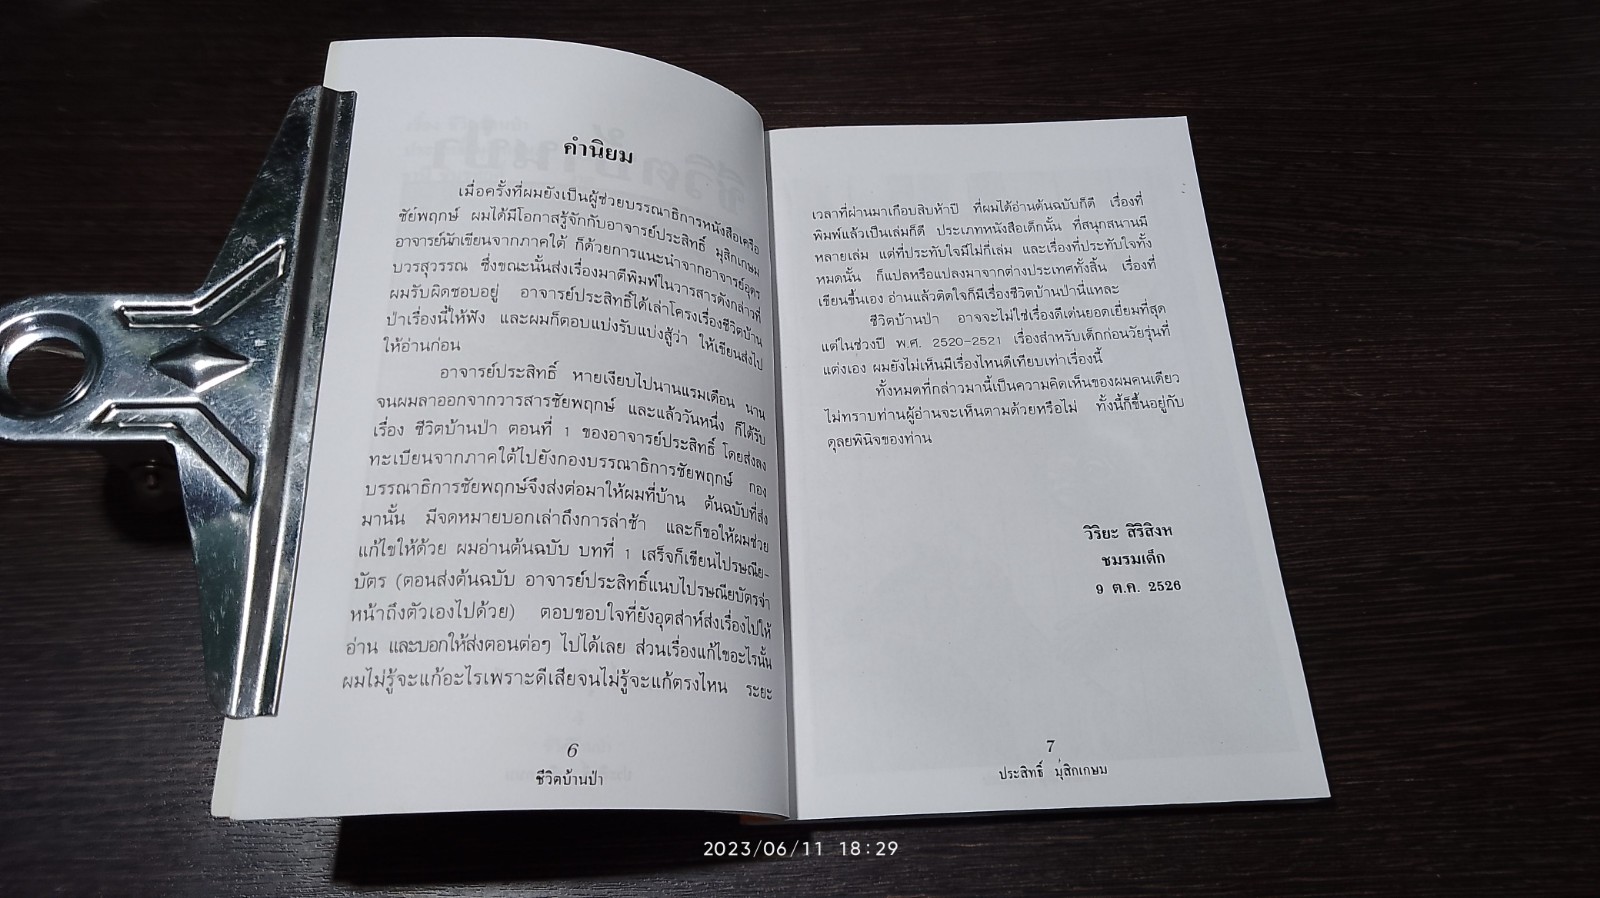 คำนิยม
เมื่อครั้งที่ผมยังเป็นผู้ช่วยบรรณาธิการหนังสือเครือ
ชัยพฤกษ์ ผมได้มีโอกาสรู้จักกับอาจารย์ประสิทธิ์ มุสิกเกษม
อาจารย์นักเขียนจากภาคใต้ ก็ด้วยการแนะนำจากอาจารย์อุดร
บวรสุวรรณ ซึ่งขณะนั้นส่งเรื่องมาตีพิมพ์ในวารสารดังกล่าวที่
ผมรับผิดชอบอยู่ อาจารย์ประสิทธิ์ได้เล่าโครงเรื่องชีวิตบ้าน
ป่าเรื่องนี้ให้ฟัง และผมก็ตอบแบ่งรับแบ่งสู้ว่า ให้เขียนส่งไป
ให้อ่านก่อน
อาจารย์ประสิทธิ์ หายเงียบไปนานแรมเดือน นาน
จนผมลาออกจากวารสารชัยพฤกษ์ และแล้ววันหนึ่ง ก็ได้รับ
เรื่อง ชีวิตบ้านป่า ตอนที่ 1 ของอาจารย์ประสิทธิ์ โดยส่งลง
ทะเบียนจากภาคใต้ไปยังกองบรรณาธิการชัยพฤกษ์ กอง
บรรณาธิการชัยพฤกษ์จึงส่งต่อมาให้ผมที่บ้าน ต้นฉบับที่ส่ง
มานั้น มีจดหมายบอกเล่าถึงการล่าช้า และก็ขอให้ผมช่วย
แก้ไขให้ด้วย ผมอ่านต้นฉบับ บทที่ 1 เสร็จก็เขียนไปรษณีย-
บัตร (ตอนส่งต้นฉบับ อาจารย์ประสิทธิ์แนบไปรษณียบัตรจ่า
หน้าถึงตัวเองไปด้วย) ตอบขอบใจที่ยังอุตส่าห์ส่งเรื่องไปให้
อ่าน และบอกให้ส่งตอนต่อๆ ไปได้เลย ส่วนเรื่องแก้ไขอะไรนั้น
ผมไม่รู้จะแก้อะไรเพราะดีเสียจนไม่รู้จะแก้ตรงไหน ระยะ
6
ชีวิตบ้านป่า
เวลาที่ผ่านมาเกือบสิบห้าปี ที่ผมได้อ่านต้นฉบับก็ดี เรื่องที่
พิมพ์แล้วเป็นเล่มก็ดี ประเภทหนังสือเด็กนั้น ที่สนุกสนานมี
หลายเล่ม แต่ที่ประทับใจมีไม่กี่เล่ม และเรื่องที่ประทับใจทั้ง
หมดนั้น ก็แปลหรือแปลงมาจากต่างประเทศทั้งสิ้น เรื่องที่
เขียนขึ้นเอง อ่านแล้วติดใจก็มีเรื่องชีวิตบ้านป่านี่แหละ
ชีวิตบ้านป่า อาจจะไม่ใช่เรื่องดีเด่นยอดเยี่ยมที่สุด
แต่ในช่วงปี พ.ศ. 2520-2521 เรื่องสำหรับเด็กก่อนวัยรุ่นที่
แต่งเอง ผมยังไม่เห็นมีเรื่องไหนดีเทียบเท่าเรื่องนี้
ทั้งหมดที่กล่าวมานี้เป็นความคิดเห็นของผมคนเดียว
ไม่ทราบท่านผู้อ่านจะเห็นตามด้วยหรือไม่ ทั้งนี้ก็ขึ้นอยู่กับ
ดุลยพินิจของท่าน
วิริยะ สิริสิงห
ชมรมเด็ก
9 ต.ค. 2526
7
ประสิทธิ์ มุสิกเกษม
2023/06/11 18:29